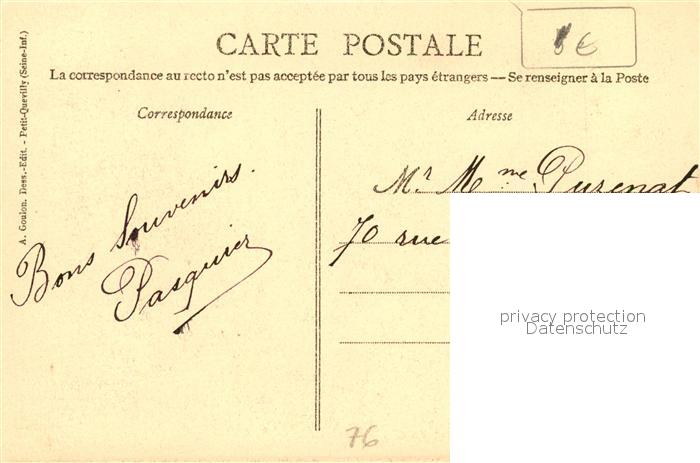 CARTE POSTALE
8 €
La correspondance au recto n'est pas acceptée par tous les pays étrangers — Se renseigner à la Poste
A. Goulon. Dess.-Edit. - Petit-Quevilly (Seine-Inf.)
Correspondance
Bons Souvenirs.
Pasquier
Adresse
Mr Mme Puzenat
70 rue
privacy protection
Datenschutz
76